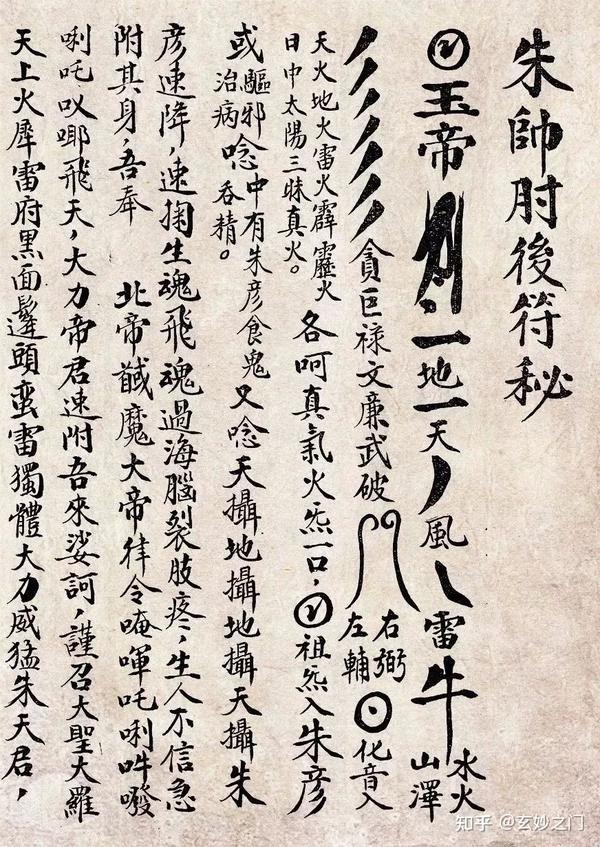 朱帥肘後符秘
玉帝 一地一天 風 雷 牛 水火山澤
貪巨禄文廉武破 右弼左輔 化音入
天火地火雷火霹靂火日中太陽三昧真火。各呵真氣火炁一口，祖炁入朱彥
或驅邪治病唸中有朱彥食鬼吞精。又唸天攝地攝地攝天攝朱
彥速降，速掏生魂飛魂過海腦裂肢疼，生人不信急
附其身，吾奉 北帝馘魔大帝律令唵喗吒唎吽
唎吒飛天，大力帝君速附吾來娑訶，謹召大聖大羅
天上火犀雷府黑面髼頭蛮雷獨體大力威猛朱天君，
知乎 @玄妙之门